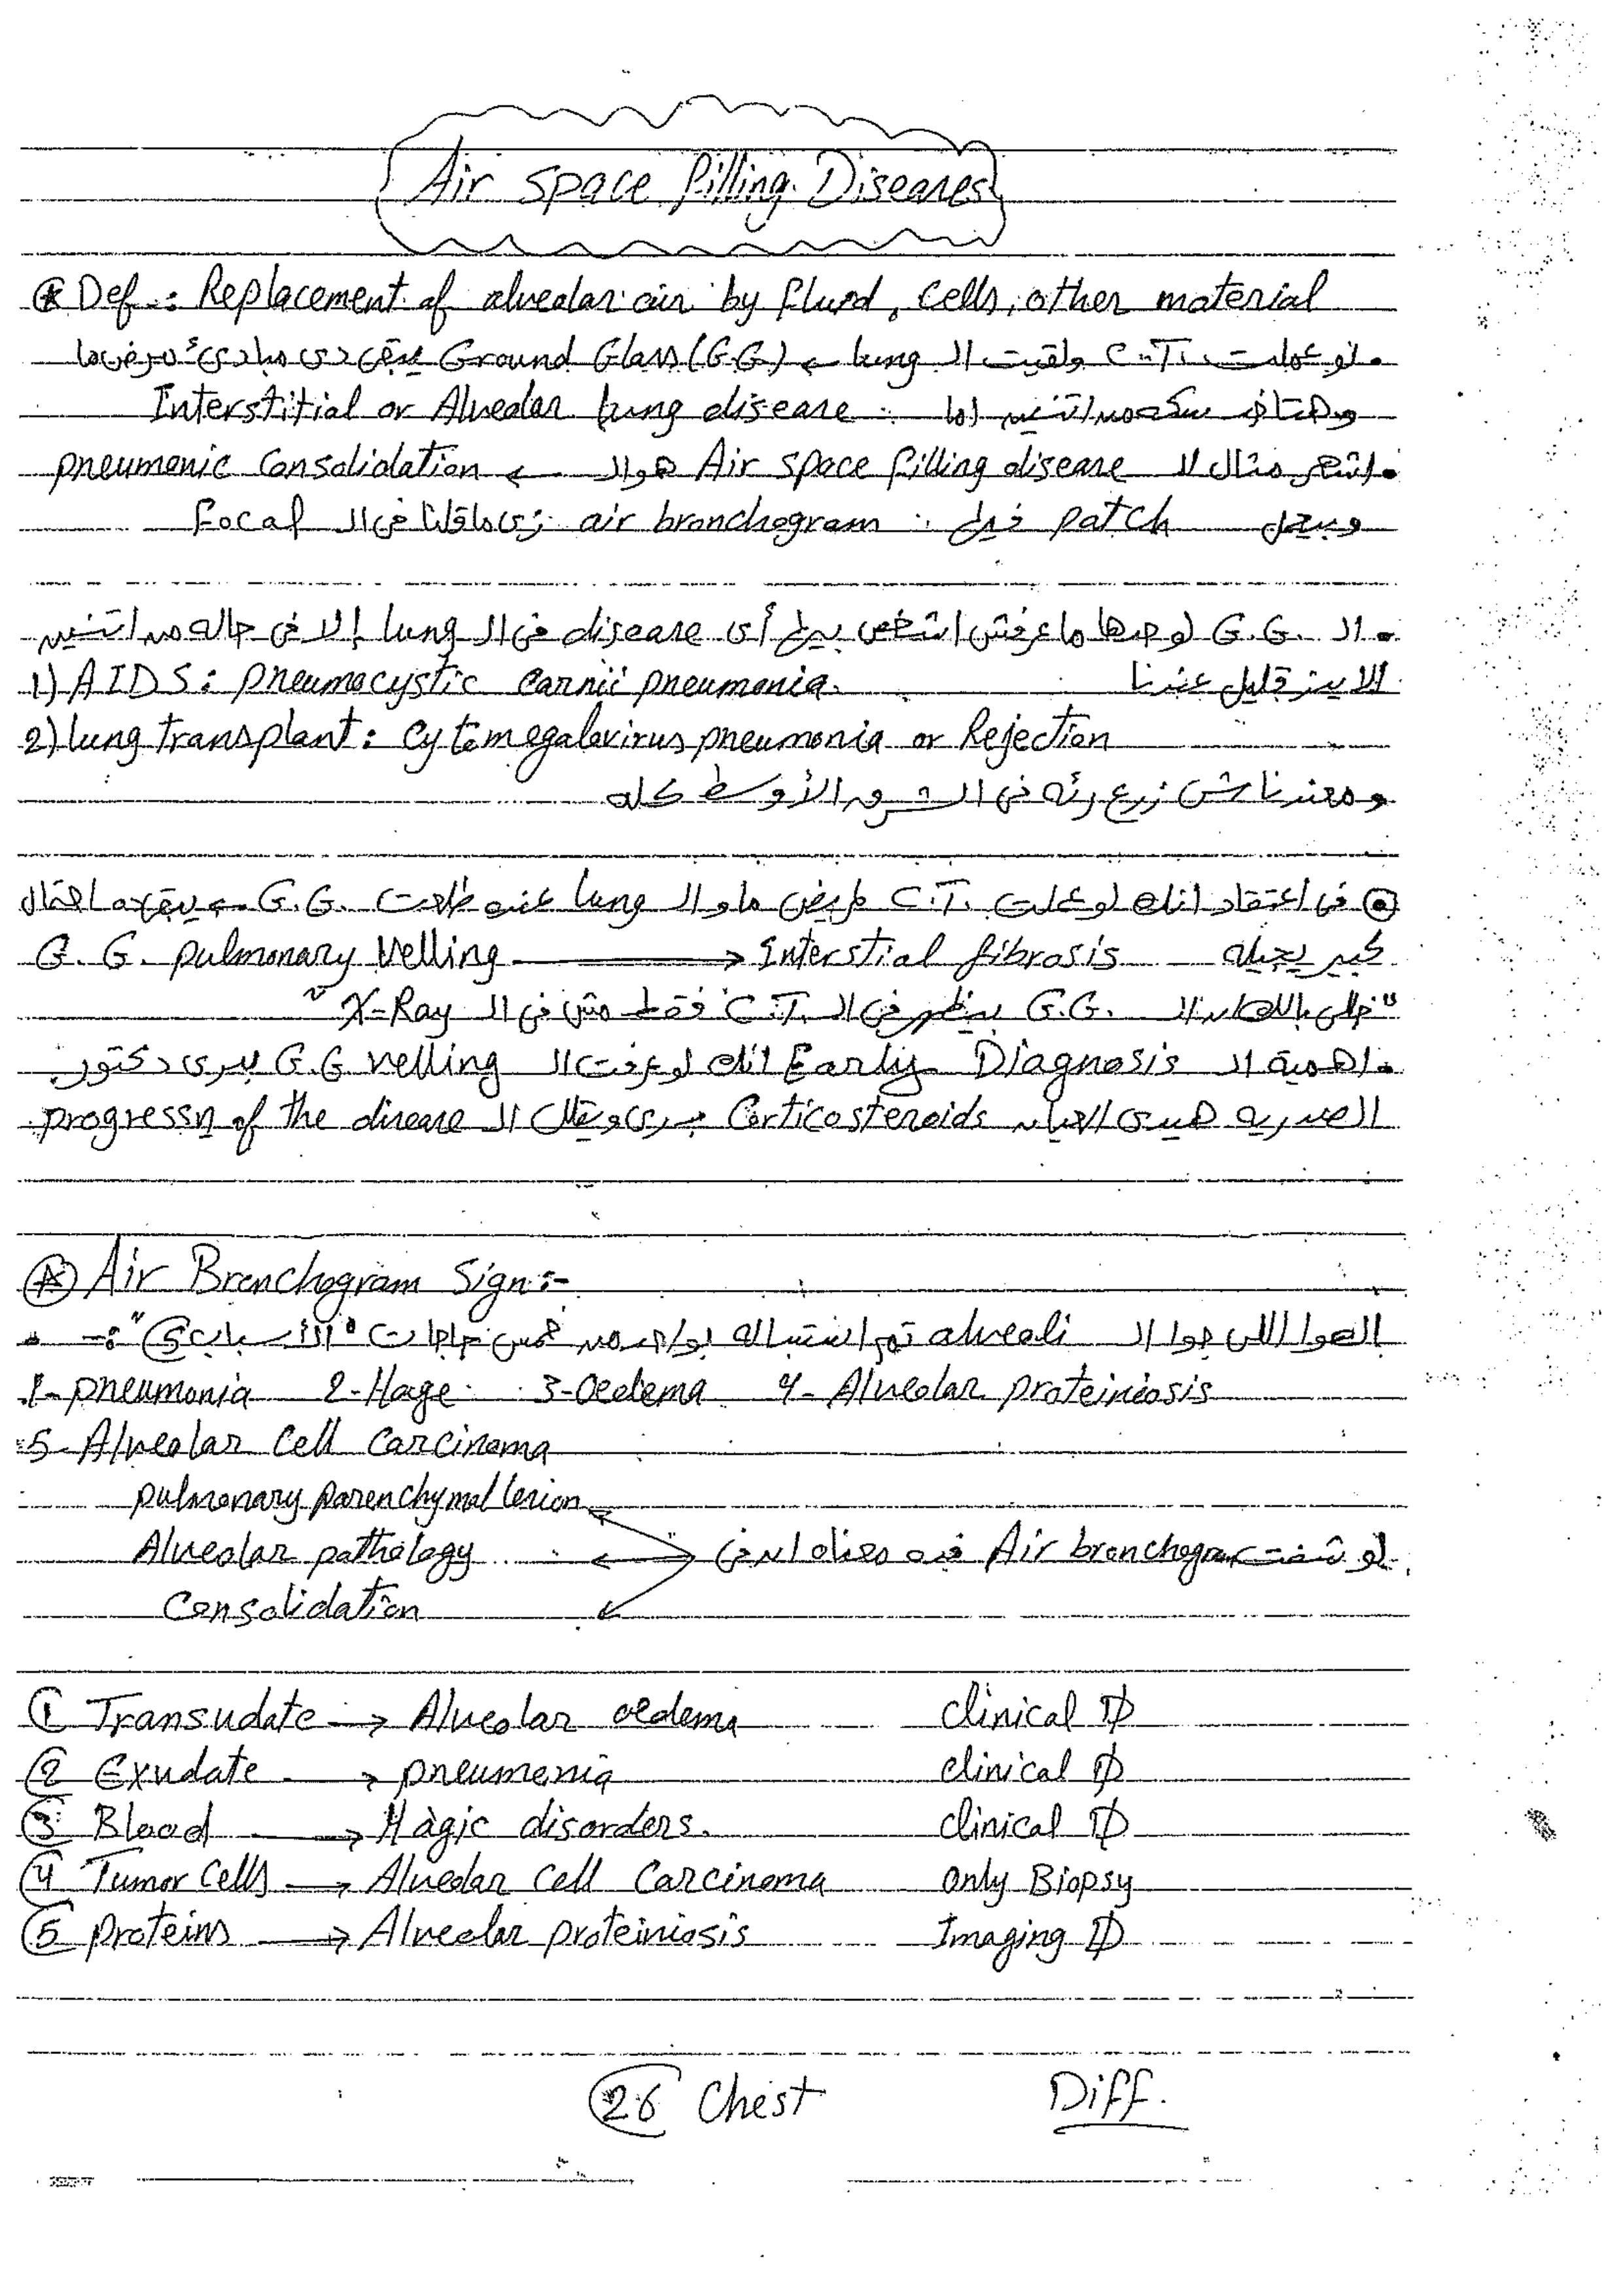 Air space filling Diseases
Def.: Replacement of alveolar air by fluid, cells, other material
• لو عملت C.T. ولقيت ال lung ← Ground Glass (G.G) يبقى دى مبادئ مرض ما
Interstitial or Alveolar lung disease : من اتنين اما
• اشهر مثال لل Air space filling disease هو ال ← pneumonic Consolidation
وبيعمل patch فيها air bronchogram زى ما قلنا فى ال Focal
• ال G.G. لوحدها ما عرفش اشخص بيها أى disease فى ال lung إلا فى حاله من اتنين
الاتنين قليل عندنا
1) AIDS: pneumocystic carnii pneumonia.
2) lung transplant: Cytomegalovirus pneumonia or Rejection
ومعندناش زرع رئه فى الشرق الأوسط كله
فى اعتقاد انك لو عملت C.T. لمريض ما و ال lung عنده طلعت G.G. ← يبقى احتمال
كبير يجيله G. G. pulmonary Velling → Interstial fibrosis
"خلى بالك ان ال G.G. بيظهر فى ال C.T. فقط مش فى ال X-Ray"
• اهمية ال Early Diagnosis انك لو عرفت ال G.G velling بدرى دكتور
الصدريه هيدى العيان Corticosteroids بدرى ويقلل ال progressn of the disease
Air Bronchogram Sign :-
• الهوا اللى جوا ال alveoli تم استبداله بواحد من خمس حاجات "الأسباب 5" :-
1- pneumonia 2- Hage 3- Oedema 4- Alveolar proteiniosis
5- Alveolar Cell Carcinoma
pulmonary parenchymal lesion
لو شفت Air bronchogram فيه معناه ان فى Alveolar pathology
Consolidation
① Transudate → Alveolar oedema clinical D
② Exudate → pneumonia clinical D
③ Blood → Hagic disorders. clinical D
④ Tumor Cells → Alveolar Cell Carcinoma only Biopsy
⑤ Proteins → Alveolar proteiniosis Imaging D
26 Chest Diff.